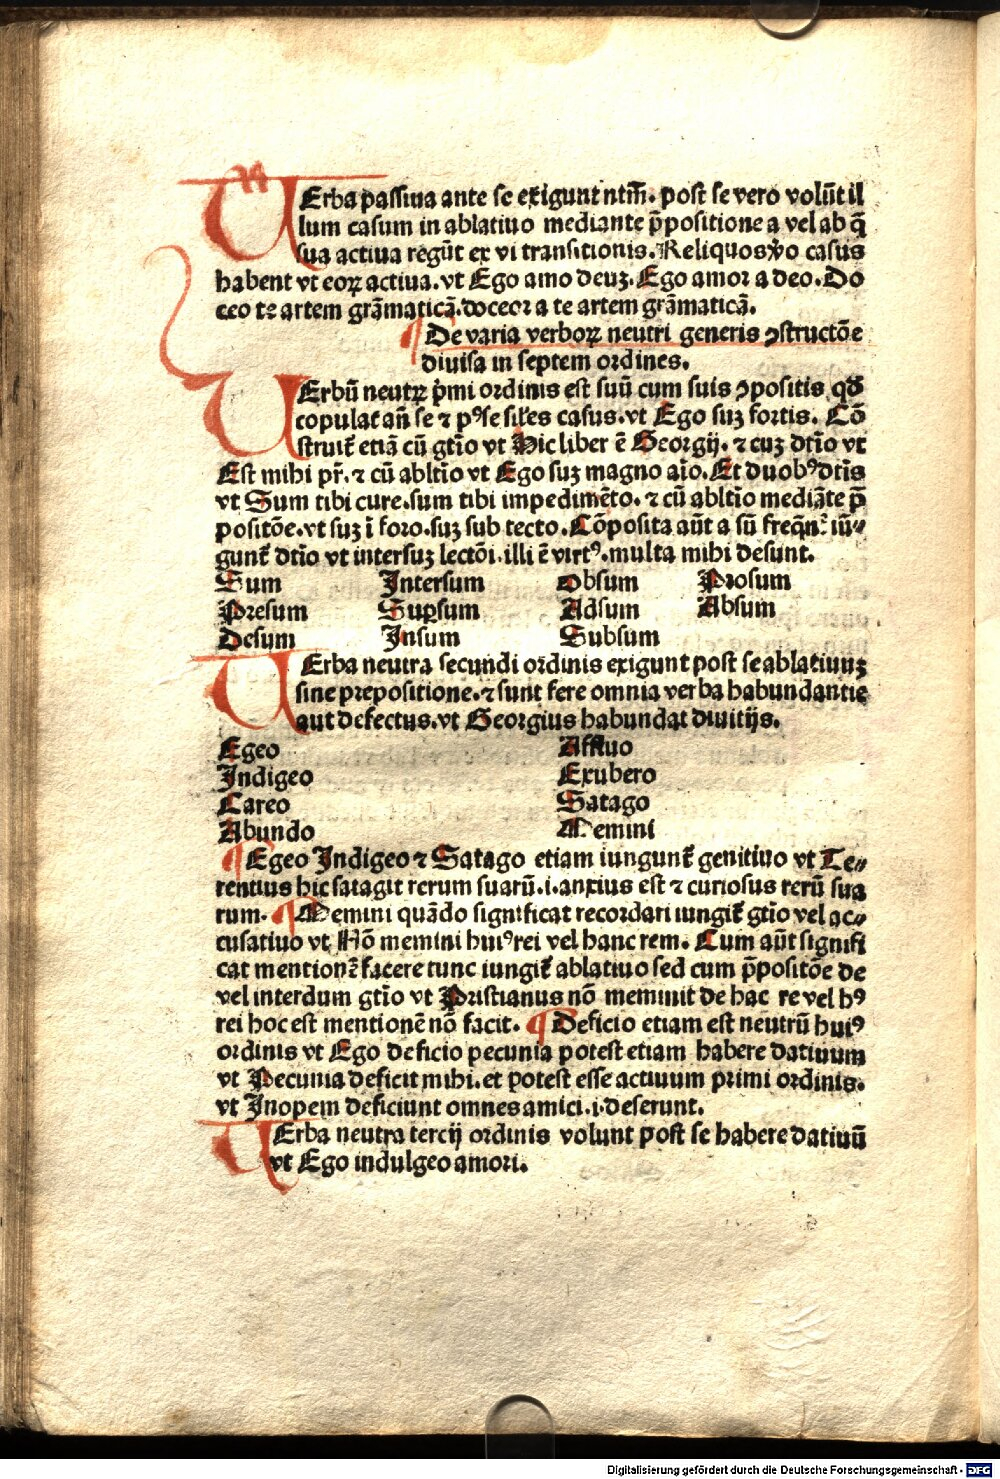 VErba passiua ante se exigunt ntm̃. post se vero volũt il
lum casum in ablatiuo mediante p̃positione a vel ab q̃
sua actiua regũt ex vi transitionis. Reliquos ṽo casus
habent vt eoꝝ actiua. vt Ego amo deuꝫ. Ego amor a deo. Do
ceo te artem grãmaticã. doceor a te artem grãmaticã.
¶ De varia verboꝝ neutri generis ꝯstructõe
diuisa in septem ordines.
VErbũ neutꝝ p̃mi ordinis est suũ cum suis ꝯpositis qđ
copulat añ se ⁊ pꝰ se sil̃es casus. vt Ego suꝫ fortis. Cõ
struit̃ etiã cũ gtĩo vt Hic liber ẽ Georgij. ⁊ cuꝫ dtĩo vt
Est mihi pr̃. ⁊ cũ abltĩo vt Ego suꝫ magno aĩo. Et duobꝰ dtĩs
vt Sum tibi cure. sum tibi impedimẽto. ⁊ cũ abltĩo mediãte p̃
positõe. vt suꝫ ĩ foro. suꝫ sub tecto. Cõposita aũt a sũ freq̃n̄ iũ⸗
gunt̃ dtĩo vt intersuꝫ lectõi. illi ẽ virtꝰ. multa mihi desunt.
Sum Intersum Obsum Prosum
Presum Suꝑsum Adsum Absum
Desum Insum Subsum
VErba neutra secundi ordinis exigunt post se ablatiuuꝫ
sine prepositione. ⁊ sunt fere omnia verba habundantie
aut defectus. vt Georgius habundat diuitijs.
Egeo Affluo
Indigeo Exubero
Careo Satago
Abundo Memini
¶ Egeo Indigeo ⁊ Satago etiam iungunt̃ genitiuo vt Te⸗
rentius hic satagit rerum suarũ. i. anxius est ⁊ curiosus rerũ sua
rum. ¶ Memini quãdo significat recordari iungit̃ gtĩo vel ac⸗
cusatiuo vt Hõ memini huiꝰ rei vel hanc rem. Cum aũt signifi
cat mentionẽ facere tunc iungit̃ ablatiuo sed cum p̃positõe de
vel interdum gtĩo vt Pristianus nõ meminit de hac re vel hꝰ
rei hoc est mentionẽ nõ facit. ¶ Deficio etiam est neutrũ huiꝰ
ordinis vt Ego deficio pecunia potest etiam habere datiuum
vt Pecunia deficit mihi. et potest esse actiuum primi ordinis.
vt Inopem deficiunt omnes amici. i. deserunt.
VErba neutra tercij ordinis volunt post se habere datiuũ
vt Ego indulgeo amori.
Digitalisierung gefördert durch die Deutsche Forschungsgemeinschaft - DFG